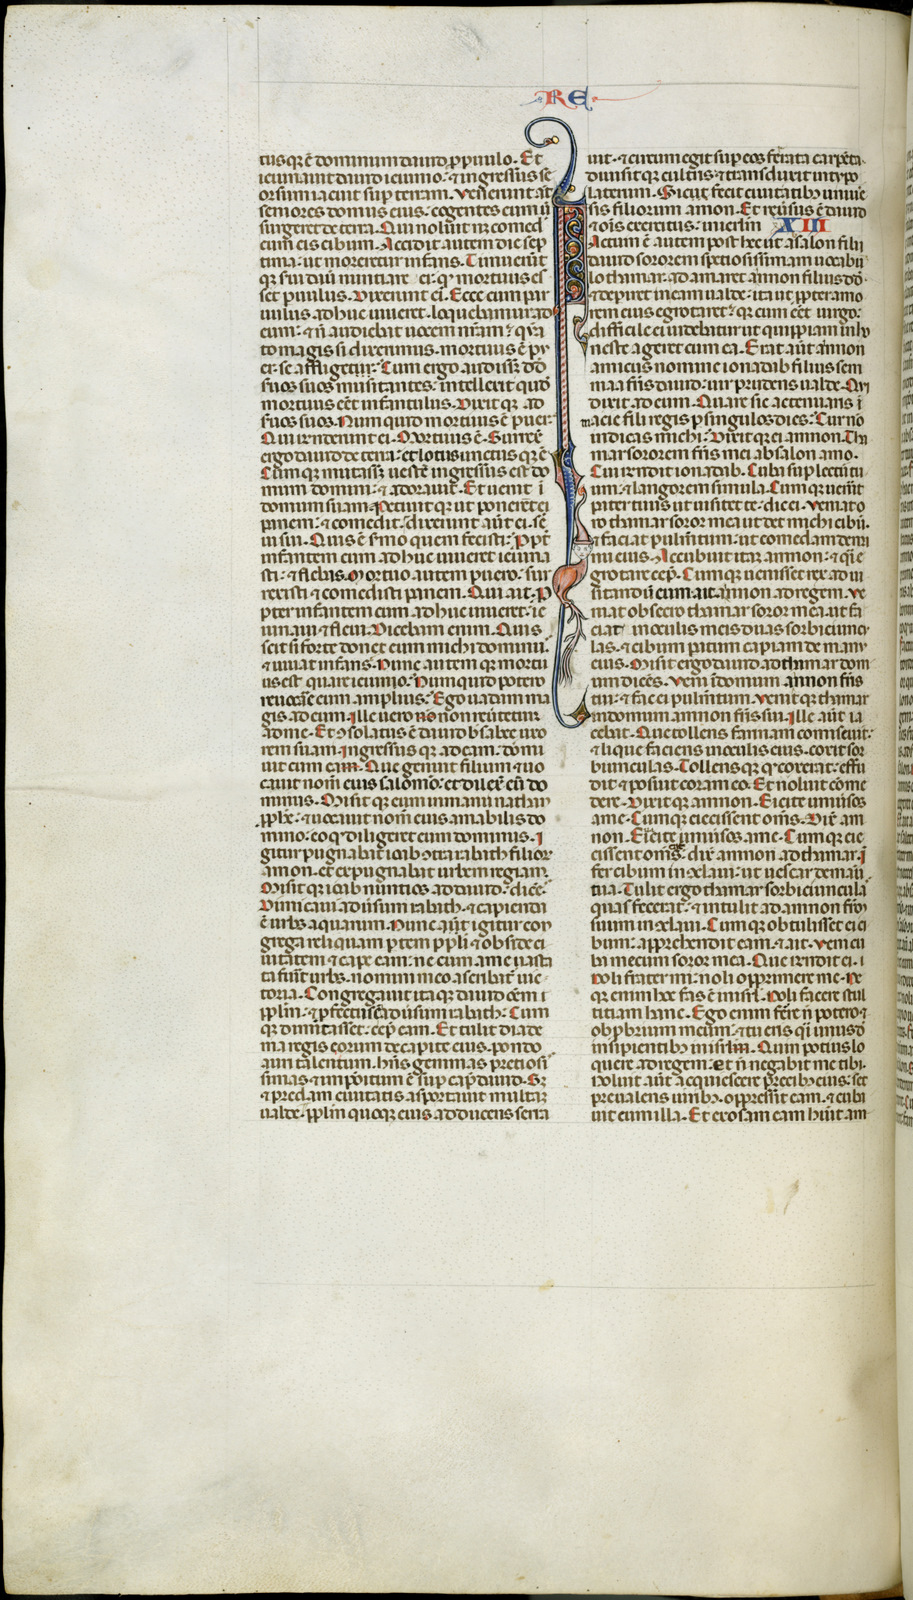 RE
tusq; ē dominum dauid p puulo. Et
ieiunauit dauid ieiunio: & ingressus se
orsum iacuit sup terram. Venerunt aūt
seniores domus eius: cogentes eum ut
surgeret de terra. Qui noluit: nec comed
cum eis cibum. Accidit autem die sep
tima: ut moreretur infans. Timuerūt
q; serui dauid nuntiare ei: qd mortuus es
set puulus. Dixerunt ei. Ecce cum par
uulus adhuc uiueret. loquebamur ad
eum: & ñ audiebat uocem nr̄am: quā
to magis si dixerimus. mortuus ē pu
er. se affliget: Cum ergo audiss; dd
seruos suos musitantes: intellexit quod
mortuus eēt infantulus. Dixit q; ad
seruos suos. Num quid mortuus ē puer.
Qui rn̄derunt ei. Mortuus ē. Surrex
ergo dauid de terra: et lotus unctus q; ē
Cum q; mutass; uestē ingressus est do
mum domini: & adorauit. Et uenit ī
domum suam. Petiuit q; ut ponerēt ei
panem: & comedit. dixerunt aūt ei. ser
ui sui. Quis ē sermo quem fecisti: Ppt
infantem cum adhuc uiueret ieiuna
sti: & flebas. Mortuo autem puero: sur
rexisti & comedisti panem. Qui ait. P
pter infantem cum adhuc uiueret: ie
iunaui & fleui. Dicebam enim. Quis
scit si forte donet eum michi dominus.
& uiuat infans. Nunc autem q; mortu
us est quare ieiuno. Num quid potero
reuocare eum amplius. Ego uadam ma
gis ad eum. Ille uero non reuertetur
ad me. Et consolatus ē dauid bersabee uxo
rem suam. Ingressus q; ad eam: dormi
uit cum ea. Que genuit filium & uo
cauit nom eius salomon: et dilex eū do
minus. Misit q; eum in manu nathan
pph̄e: & uocauit nom eius amabilis do
mino: eo q; diligeret eum dominus. I
gitur pugnabat ioab contra rabath filiorum
amon. et expugnabat urbem regiam.
Misit q; ioab nuntios ad dauid: dicēs.
Dimicaui aduersum rabath. & capienda
ē urbs aquarum. Nunc aūt igitur con
grega reliquam partem ppl̄i & obside ci
uitatem & cape eam: ne cum a me uasta
ta fuerit urbs. nomini meo ascribat uic
toria. Congregauit itaque dauid om̄em
ppl̄m: & pfectus ē aduersum rabath: Cum
q; dimicasset. cep̄ eam. Et tulit diade
ma regis eorum de capite eius. pondo
auri talentum. hn̄s gemmas pretiosi
simas & impositum ē sup cap̄ dauid. Sz
& predam ciuitatis asportauit multā;
ualde. ppl̄m quoque eius adducens serra
uit. & circum egit sup eos ferrata carpenta.
diuisit q; cultris & transduxit in typo
laterum. Sicut fecit ciuitatib; uniuer
sis filiorum amon. Et reuersus ē dauid
& om̄is exercitus: in ierlm̄ XIII
Factum ē autem post hec ut absalon filii
dauid sororem spetiosissimam uocabu
lo thamar. adamaret amnon filius dd
& depiret in eam ualde: ita ut ppter amo
rem eius egrotaret: q; cum eēt uirgo:
difficile ei uidebatur ut quippiam inho
neste ageret cum ea. Erat aūt amnon
amicus nomine ionadab filius sem
maa fr̄is dauid. uir prudens ualde. Qui
dixit ad eum. Quare sic attenuaris ī
macie fili regis p singulos dies. Cur nō
indicas michi. Dixit q; ei amnon. Tha
mar sororem fr̄is mei absalon amo.
Cui rn̄dit ionadab. Cuba sup lectū tu
um: & langorem simula. Cum q; uenerit
pater tuus ut uisitet te: dic ei. Veniat o
ro thamar soror mea ut det michi cibū.
& faciat pulm̄tum: ut comedam de ma
nu eius. Accubuit itaq; amnon: & quasi e
grotare cep̄. Cum q; uenisset rex ad ui
sitandū eum. ait amnon ad regem. Ve
niat obsecro thamar soror mea. ut fa
ciat in oculis meis duas sorbicunc
las. & cibum patum capiam de manu
eius. Misit ergo dauid ad thamar dom
um dicēs. Veni in domum amnon fr̄is
tui: & fac ei pulm̄tum. Venit q; thamar
in domum amnon fr̄is sui. Ille aūt ia
cebat. Que tollens farinam comiscuit:
& liquefaciens in oculis eius. coxit sor
biunculas. Tollens q; qd coxerat: effu
dit & posuit coram eo. Et noluit come
dere. Dixit q; amnon. Eicite uniuersos
a me. Cumque eiecissent om̄s. Dix̄ am
non. Eicite uniuersos a me. Cum que eie
cissent om̄s. dix̄ amnon ad thamar. I
fer cibum in conclaui: ut uescar de manu
tua. Tulit ergo thamar sorbiciunculas
quas fecerat: & intulit ad amnon frem
suum in conclaui. Cum q; obtulisset ei ci
bum: apprehendit eam. & ait. Veni cu
ba mecum soror mea. Que rn̄dit ei. N
oli frater mi: noli opprimere me. Ne
que enim hoc fas ē in isrl̄. Noli facere stul
titiam hanc. Ego enim ferre ñ potero
obpbrium meum: & tu eris quasi unus de
insipientib; in isrl̄. Quin potius lo
quere ad regem: et ñ negabit me tibi.
Noluit aūt acquiescere precib; eius: set
preualens uirib; oppressit eam. & cuba
uit cum illa. Et exosam eam habuit am